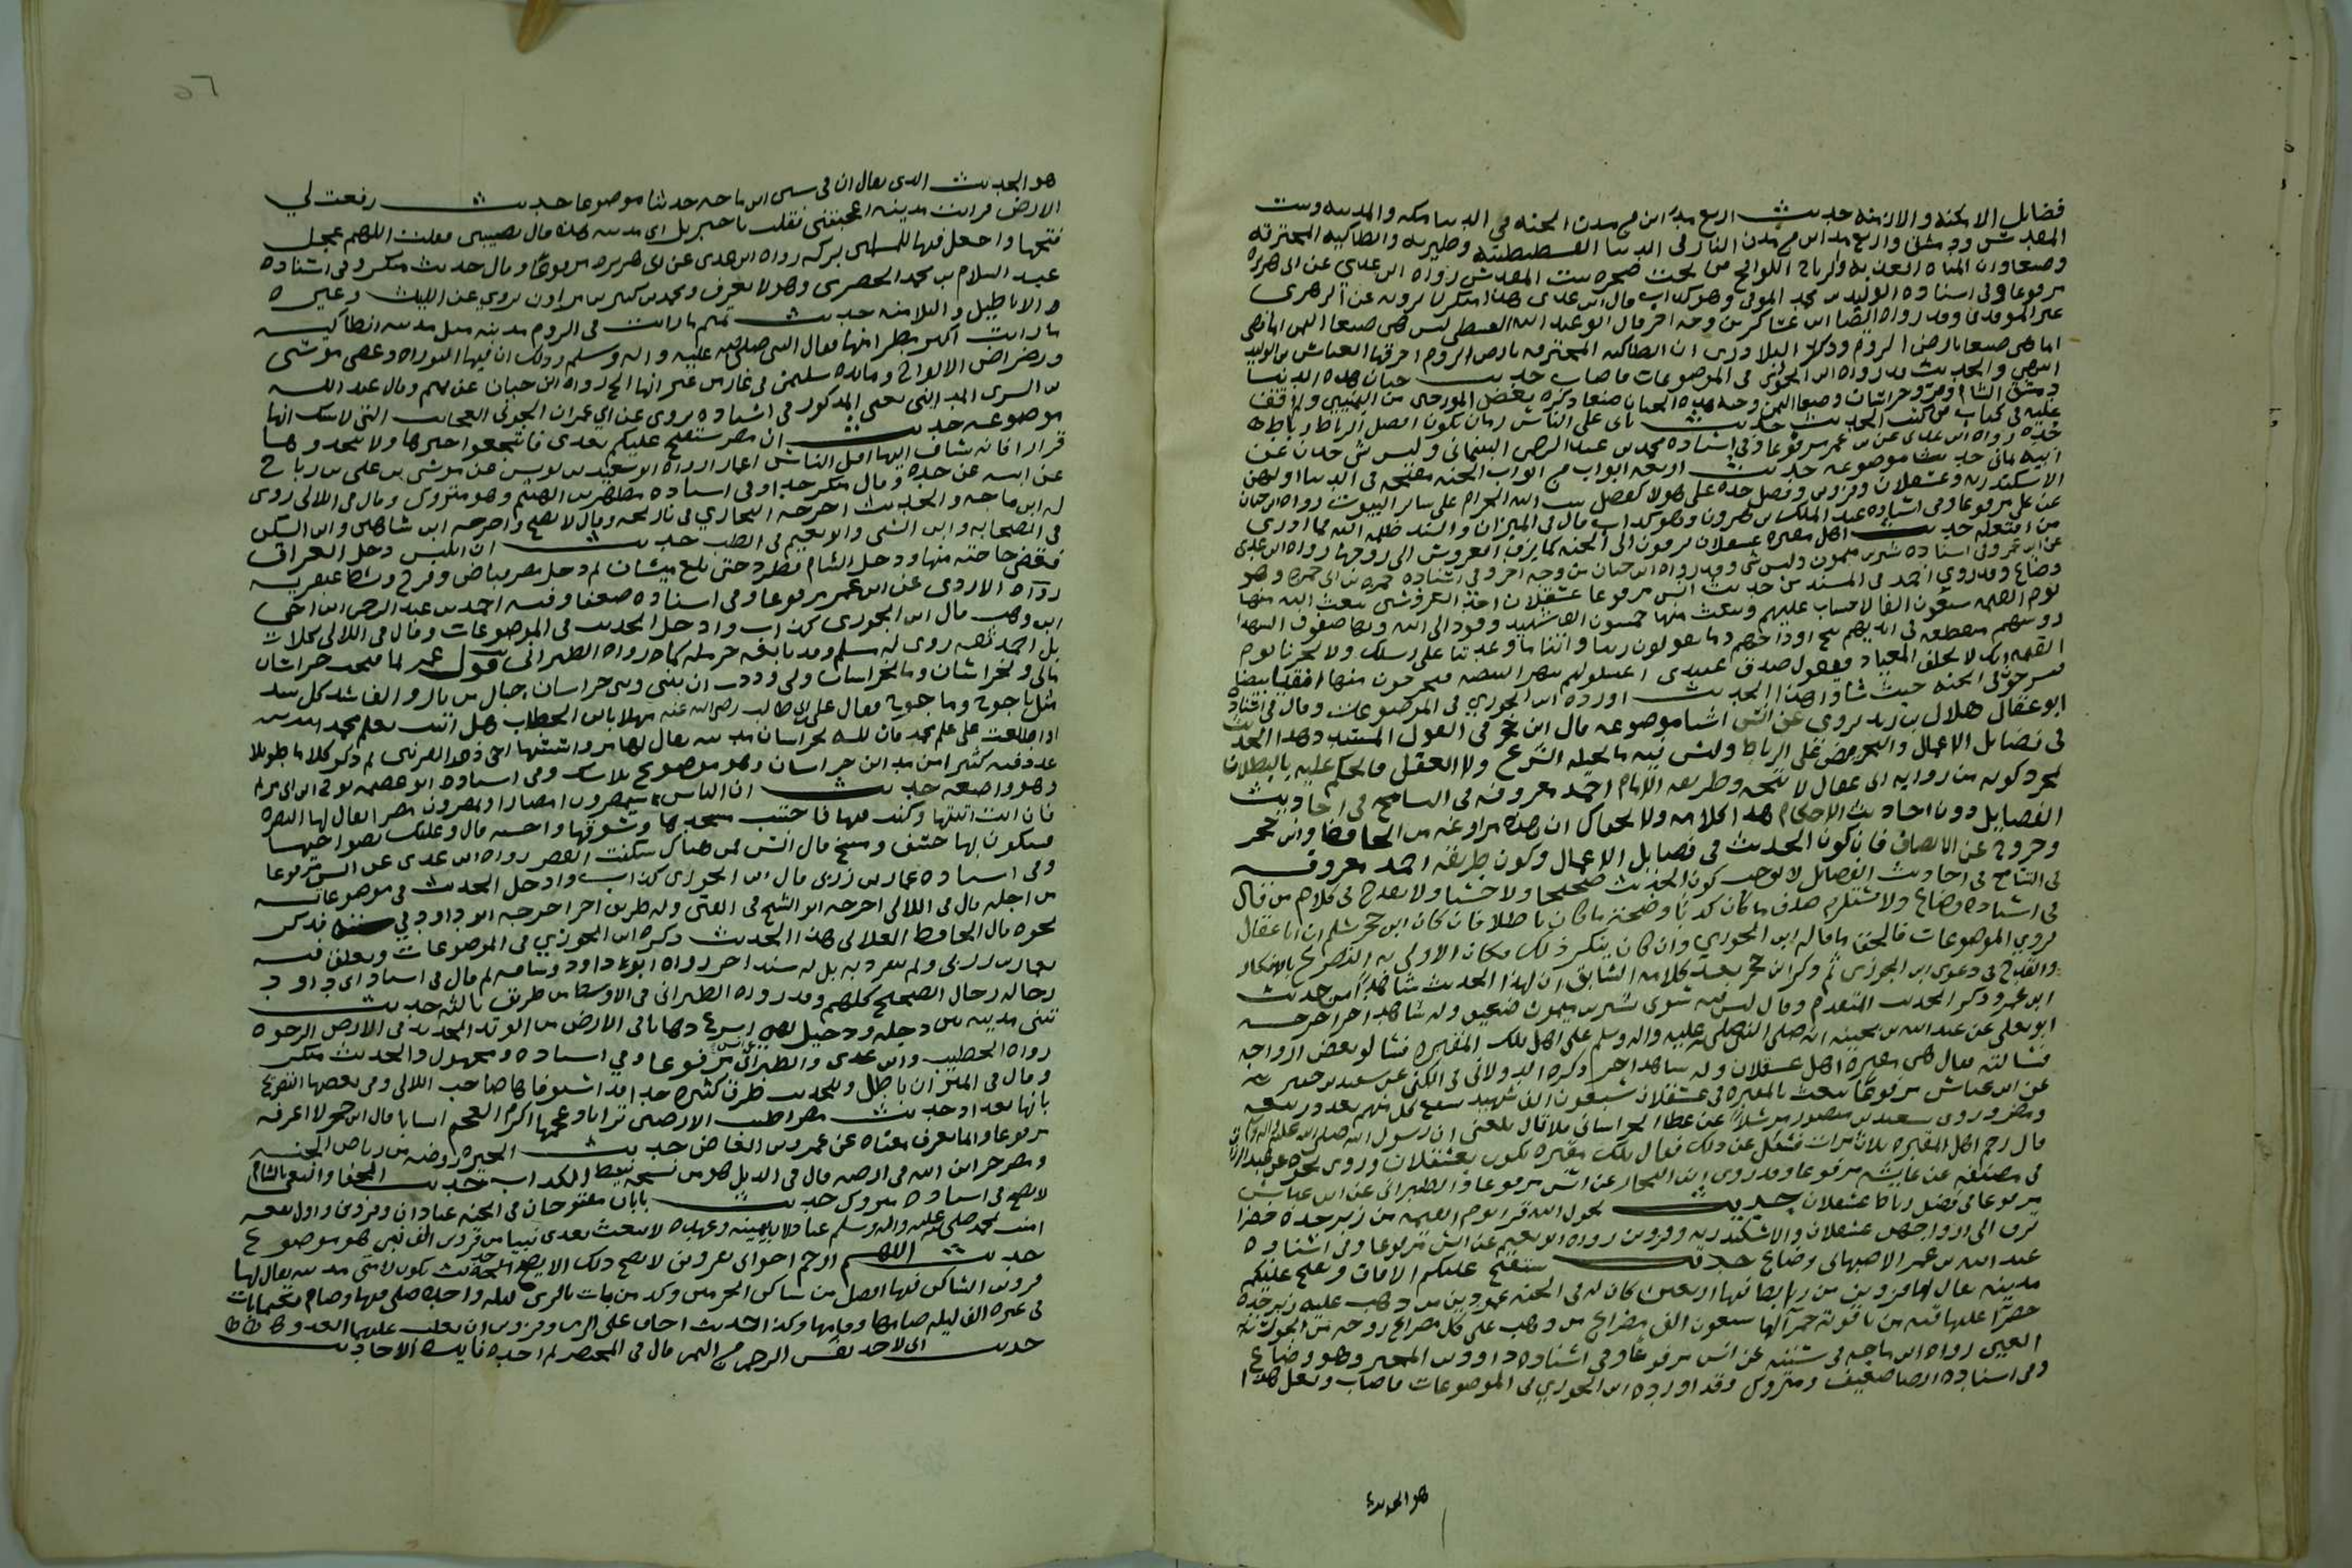 فضايل الامكنة والازمنة حديث اربع مداين من مدن الجنه في الدنيا مكه والمدينه وبيت
المقدس ودمشق واربع مداين من مدن النار في الدنيا القسطنطينة وطبريه وانطاكيه المحترقه
وصنعا وان المياه العذبة والرياح اللواقح من تحت صخرة بيت المقدس رواه ابن عدي عن ابي هريرة
مرفوعا وفي اسناده الوليد بن محمد الموقري وهو كذاب قال ابن عدي هذا منكر لا يرويه عن الزهري
غير الموقري وقد رواه ايضا ابن عساكر من وجه اخر قال ابو عبد الله السقطي ليس هي صنعا اليمن انما هي
انما هي صنعا بارض الروم وذكر البلاذري ان انطاكيه المحترقه بارض الروم احرقها العباس بن الوليد
انتهى والحديث قد رواه ابن الجوزي في الموضوعات فاصاب حديث جنان هذه الدنيا
دمشق الشام ومرو خراسان وصنعا اليمن وجنة هذه الجنان صنعا ذكره بعض المورخين من اليمنيين ولا اقف
عليه في كتاب من كتب الحديث حديث ياتي على الناس زمان يكون افضل الرباط رباط
جده رواه ابن عدي عن ابن عمر مرفوعا وفي اسناده محمد بن عبد الرحمن البيلماني وليس بشي حدث عن
ابيه بماتي حديث موضوعه حديث اربعه ابواب من ابواب الجنه مفتحه في الدنيا اولهن
الاسكندريه وعسقلان وقزوين وفضل جده على هولا كفضل بيت الله الحرام على ساير البيوت رواه ابن حبان
عن علي مرفوعا وفي اسناده عبد الملك بن هرون وهو كذاب قال في الميزان والسند ظلمه الله فما ادري
من افتعله حديث اهل مقبرة عسقلان يزفون الى الجنه كما يزف العروس الى زوجها رواه ابن عدي
عن ابن عمر وفي اسناده بشير بن ميمون وليس بشي وقد رواه ابن حبان من وجه اخر وفي اسناده حمزه بن ابي حمزه وهو
وضاع وقد روى احمد في المسند من حديث انس مرفوعا عسقلان احد العروسين يبعث الله منها
يوم القيمه سبعون الفا لا حساب عليهم ويبعث منها خمسون الف شهيد وفودا الى الله وبها صفوف الشهدا
روسهم مقطعه في ايديهم تثج اوداجهم دما يقولون ربنا واتنا ما وعدتنا على رسلك ولا تخزنا يوم
القيمه انك لا تخلف الميعاد فيقول صدق عبيدي اغسلوهم بنهر البيضه فيخرجون منها نقيا بيضا
يسرحون في الجنه حيث شاوا هذا الحديث اورده ابن الجوزي في الموضوعات وقال في اسناده
ابو عقال هلال بن زيد يروي عن انس اشيا موضوعه قال ابن حجر في القول المسدد وهذا الحديث
في فضايل الاعمال والتحريض على الرباط وليس فيه ما يحيله الشرع ولا العقل فالحكم عليه بالبطلان
بمجرد كونه من رواية ابي عقال لا يتجه وطريقه الامام احمد معروفه في التسامح في احاديث
الفضايل دون احاديث الاحكام هذا كلامه ولا يخفاك ان هذه مراوغه من الحافظ ابن حجر
وخروج عن الانصاف فان كون الحديث في فضايل الاعمال وكون طريقة احمد معروفه
في التسامح في احاديث الفضايل لا يوجب كون الحديث صحيحا ولا حسنا ولا يقدح في كلام من قال
في اسناده وضاع ولا يستلزم صدق ما كان كذبا وصحة ما كان باطلا فان كان ابن حجر يسلم ان ابا عقال
يروي الموضوعات فالحق ما قاله ابن الجوزي وان كان ينكر ذلك فكان الاولى به التصريح بالانكار
والقدح في دعوى ابن الجوزي ثم ذكر ابن حجر بعد كلامه السابق ان لهذا الحديث شاهدا من حديث
ابن عمر وذكر الحديث المتقدم وقال ليس فيه سوى بشير بن ميمون ضعيف وله شاهد اخر اخرجه
ابو يعلى عن عبد الله بن بحينه انه صلى الله عليه واله وسلم على اهل تلك المقبره فسالو بعض ازواجه
فسالته فقال هي مقبرة اهل عسقلان وله شاهد اخر ذكره الدولابي في الكنى عن سعيد بن
عن ابن عباس مرفوعا يبعث بالمقبره في عسقلان سبعون الف شهيد يشفع كل منهم بعدد ربيعه
ومضر وروى سعيد بن منصور مرسلا عن عطا الخراساني بلاغا قال بلغني ان رسول الله صلى الله عليه واله وسلم
قال رحم اهل المقبره ثلاث مرات فسئل عن ذلك فقال تلك مقبرة تكون بعسقلان وروى نحوه عبد الرزاق
في مصنفه عن عايشه مرفوعا وقد روى ابن النجار عن انس مرفوعا والطبراني عن ابن عباس
مرفوعا في فضل رباط عسقلان حديث يحول الله قرى يوم القيمه من زبرجده خضرا
تزف الى ازواجهن عسقلان والاسكندريه وقزوين رواه ابو نعيم عن انس مرفوعا وفي اسناده
عبد الله بن عمر الاصبهاني وضاع حديث ستفتح عليكم الافاق ويفتح عليكم
مدينه يقال لها قزوين من رابط فيها اربعين كان له في الجنه عمود من ذهب عليه زبرجده
خضرا عليها قبه من ياقوته حمرا لها سبعون الف مصراع من ذهب على كل مصراع زوجه من الحور
العين رواه ابن ماجه في سننه عن انس مرفوعا وفي اسناده داوود بن المحبر وهو وضاع
وفي اسناده ايضا ضعيف ومتروك وقد اورده ابن الجوزي في الموضوعات فاصاب ولعل هذا
هو الحديث
٥٦
هو الحديث الذي يقال ان في سنن ابن ماجه حديثا موضوعا حديث رفعت لي
الارض فرايت مدينه اعجبتني فقلت يا جبريل اي مدينه هذه قال نصيبين فقلت اللهم عجل
فتحها واجعل فيها للمسلمين بركه رواه ابن عدي عن ابي هريره مرفوعا وقال حديث منكر وفي اسناده
عبد السلام بن محمد الحضرمي وهو لا يعرف ومحمد بن كثير بن مروان يروي عن الليث وغيره
الاباطيل والبلا منه حديث تميم ما رايت في الروم مدينه مثل مدينه انطاكيه
ما رايت اكثر مطرا منها فقال النبي صلى الله عليه واله وسلم وذلك ان فيها التوراه وعصى موسى
ورضراض الالواح ومايدة سليمن في غار من غيرانها الخ رواه ابن حبان عن تميم وقال عبد الله
بن السري المدايني يعني المذكور في اسناده يروي عن ابي عمران الجوني العجايب التي لا يشك انها
موضوعه حديث ان مصر ستفتح عليكم بعدي فانتجعوا خيرها ولا تتخذوها
قرارا فانه يساق اليها اقل الناس اعمارا رواه ابو سعيد بن يونس عن موسى بن علي بن رباح
عن ابيه عن جده وقال منكر جدا وفي اسناده مطهر بن الهيثم وهو متروك وقال في اللالي روى
له ابن ماجه والحديث اخرجه البخاري في تاريخه وقال لا يصح واخرجه ابن شاهين وابن السكن
في الصحابه وابن السني وابو نعيم في الطب حديث ان ابليس دخل العراق
فقضى حاجته منها ودخل الشام فطرد حتى بلغ بيسان ثم دخل مصر فباض وفرخ وبسط عبقريه
رواه الازدي عن ابن عمر مرفوعا وفي اسناده ضعفا وفيه احمد بن عبد الرحمن ابن اخي
ابن وهب قال ابن الجوزي كذاب وادخل الحديث في الموضوعات وقال في اللالي كلا
بل احمد ثقه روى له مسلم وقد تابعه حرمله كما رواه الطبراني قول عمر لما فتحت خراسان
مالي ولخراسان وما لخراسان ولي وددت ان بيني وبين خراسان جبال من بارد والف سد كل سد
مثل ياجوج وماجوج فقال علي بن ابي طالب رضي الله عنه مهلا يا ابن الخطاب هل اتيت بعلم محمد
اذا اطلعت على علم محمد فان لله بخراسان مدينه يقال لها مرو اسسها اخي ذو القرنين ثم ذكر كلاما طويلا
عدد فيه كثيرا من مداين خراسان وهو موضوع بلا شك وفي اسناده ابو عصمه نوح بن ابي مريم
وهو واضعه حديث ان الناس سيمصرون امصارا ويمصرون مصرا يقال لها البصره
فان انت اتيتها وكنت فيها فاجتنب مسجدها وسوقها قال وعليك بضواحيها
سيكون بها خسف ومسخ قال انس فمن هناك سكنت القصر رواه ابن عدي عن انس مرفوعا
وفي اسناده عمار بن زربي قال ابن الجوزي كذاب وادخل الحديث في موضوعاته
من اجله قال في اللالي اخرجه ابو الشيخ في الفتن وله طريق اخر اخرجه ابو داود في سننه فذكر
نحوه قال الحافظ العلاءي هذا الحديث ذكره ابن الجوزي في الموضوعات وتعلق فيه
بعمار بن زربي ولم ينفرد به بل له سند اخر رواه ابو داود وساقه ثم قال في اسناد ابي داود
رجاله رجال الصحيح كلهم وقد رواه الطبراني في الاوسط من طريق ثالثه حديث
تبنى مدينه بين دجله ودجيل لهي اسرع ذهابا في الارض من الوتد الحديد في الارض الرخوه
رواه الخطيب وابن عدي والطبراني عن انس مرفوعا وفي اسناده ومجهول والحديث منكر
وقال في الميزان باطل وللحديث طرق كثيره جدا قد استوفاها صاحب اللالي وفي بعضها التصريح
بانها بغداد حديث مصر اطيب الارضين ترابا وعجمها اكرم العجم انسابا قال ابن حجر لا اعرفه
مرفوعا وانما يعرف معناه عن عمرو بن العاص حديث الجيزه روضه من رياض الجنه
ومصر خزاين الله في ارضه قال في الذيل هو من نسخة نبيط الكذاب حديث الجفا والبغي بالشام
لا يصح في اسناده متروك حديث بابان مفتوحان في الجنه عبادان وقزوين واول بقعه
امنت بمحمد صلى الله عليه واله وسلم عبادلا بيمينه وعهده لا يبعث بعدي نبيا من قزوين الف نبي هو موضوع
حديث اللهم ارحم اخواني بقزوين لا يصح ذلك الا يصح حديث تكون لامتي مدينه يقال لها
قزوين الساكن فيها افضل من ساكن الحرمين وكذ من بات بالري ليله واحده صلى فيها وصام فكانما بات
في غيره الف ليله صامها وقامها وكذا حديث اخاف على الري وقزوين ان يغلب عليهما العدو
حديث اني لاجد نفس الرحمن من اليمن قال في المختصر لم اجده فايده الاحاديث